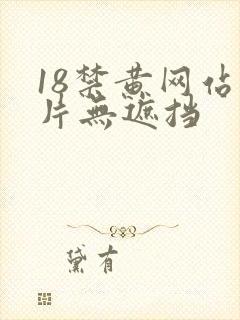 18禁黄网佔
片無遮挡
黛有